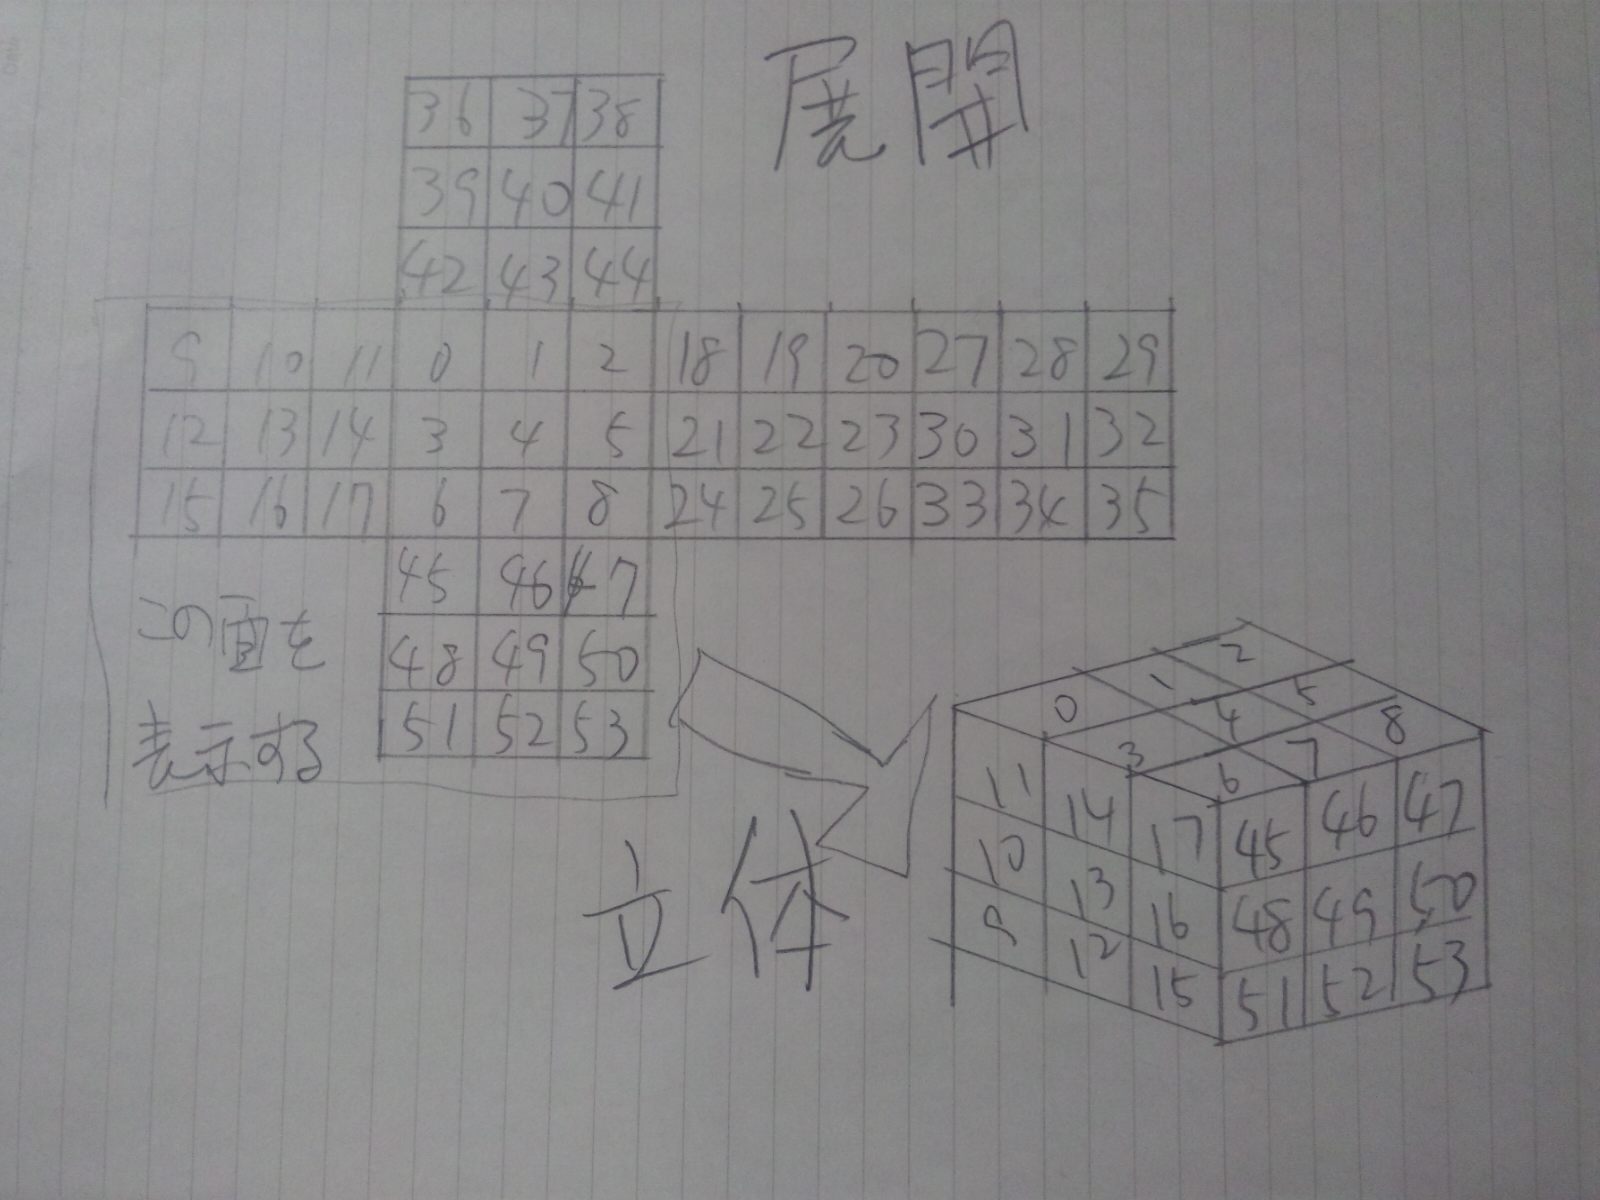 展開
36 37 38
39 40 41
42 43 44
9 10 11 0 1 2 18 19 20 27 28 29
12 13 14 3 4 5 21 22 23 30 31 32
15 16 17 6 7 8 24 25 26 33 34 35
45 46 47
48 49 50
51 52 53
この面を
表示する
立体
0 1 2
3 4 5
6 7 8
11 14 17
10 13 16
9 12 15
45 46 47
48 49 50
51 52 53